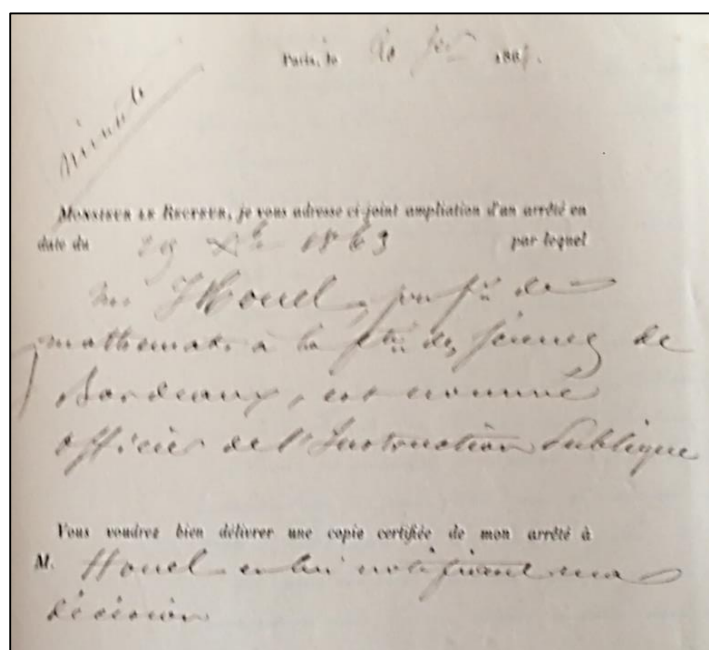 Paris, le 20 186
minute
MONSIEUR LE RECTEUR, je vous adresse ci-joint ampliation d'un arrêté en
date du 29 Xbre 1863 par lequel
Mr. Houel, profr. de
mathémat. à la fté. des sciences de
Bordeaux, est nommé
officier de l'Instruction Publique
Vous voudrez bien délivrer une copie certifiée de mon arrêté à
M. Houel en lui notifiant ma
décision